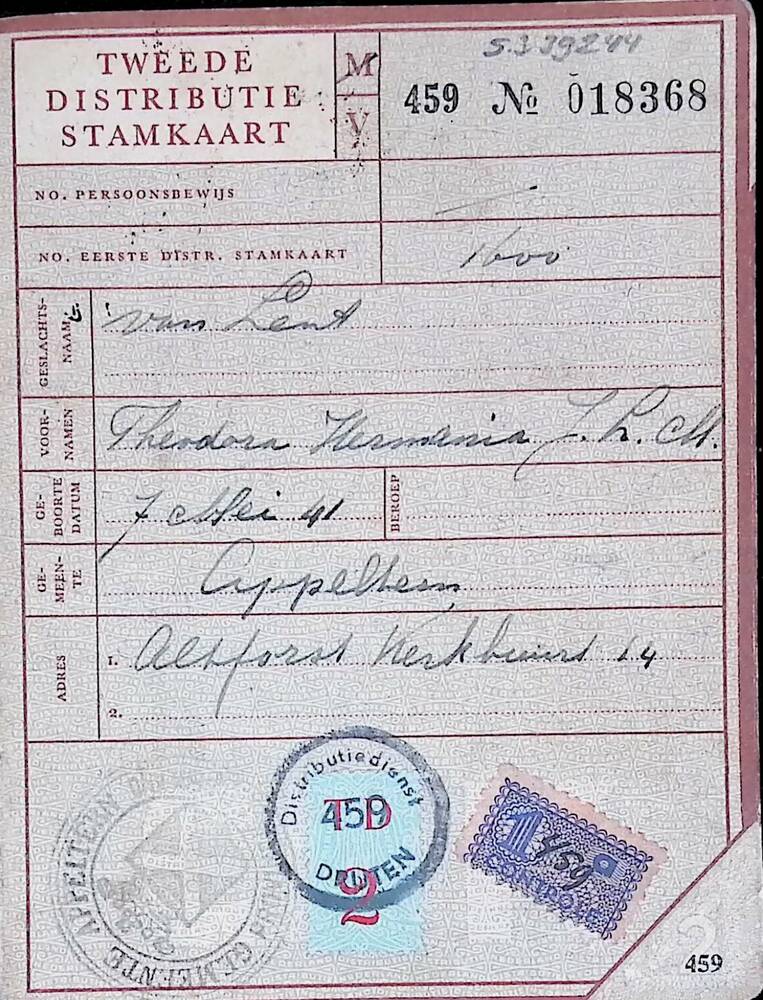 5.3.39244
TWEEDE
DISTRIBUTIE
STAMKAART
M
V
459 № 018368
NO. PERSOONSBEWIJS
—
NO. EERSTE DISTR. STAMKAART
1600
GESLACHTS-
NAAM
van Lent
VOOR-
NAMEN
Theodora Hermania J. L. M.
GE-
BOORTE
DATUM
7 Mei 41
BEROEP
GE-
MEEN-
TE
Appeltern
ADRES
1. Altforst Kerkbuurt 14
2.
Distributiedienst
459
DRUTEN
TD
2
GEMEENTE APPELTERN
1a
459
CONTROLE
459